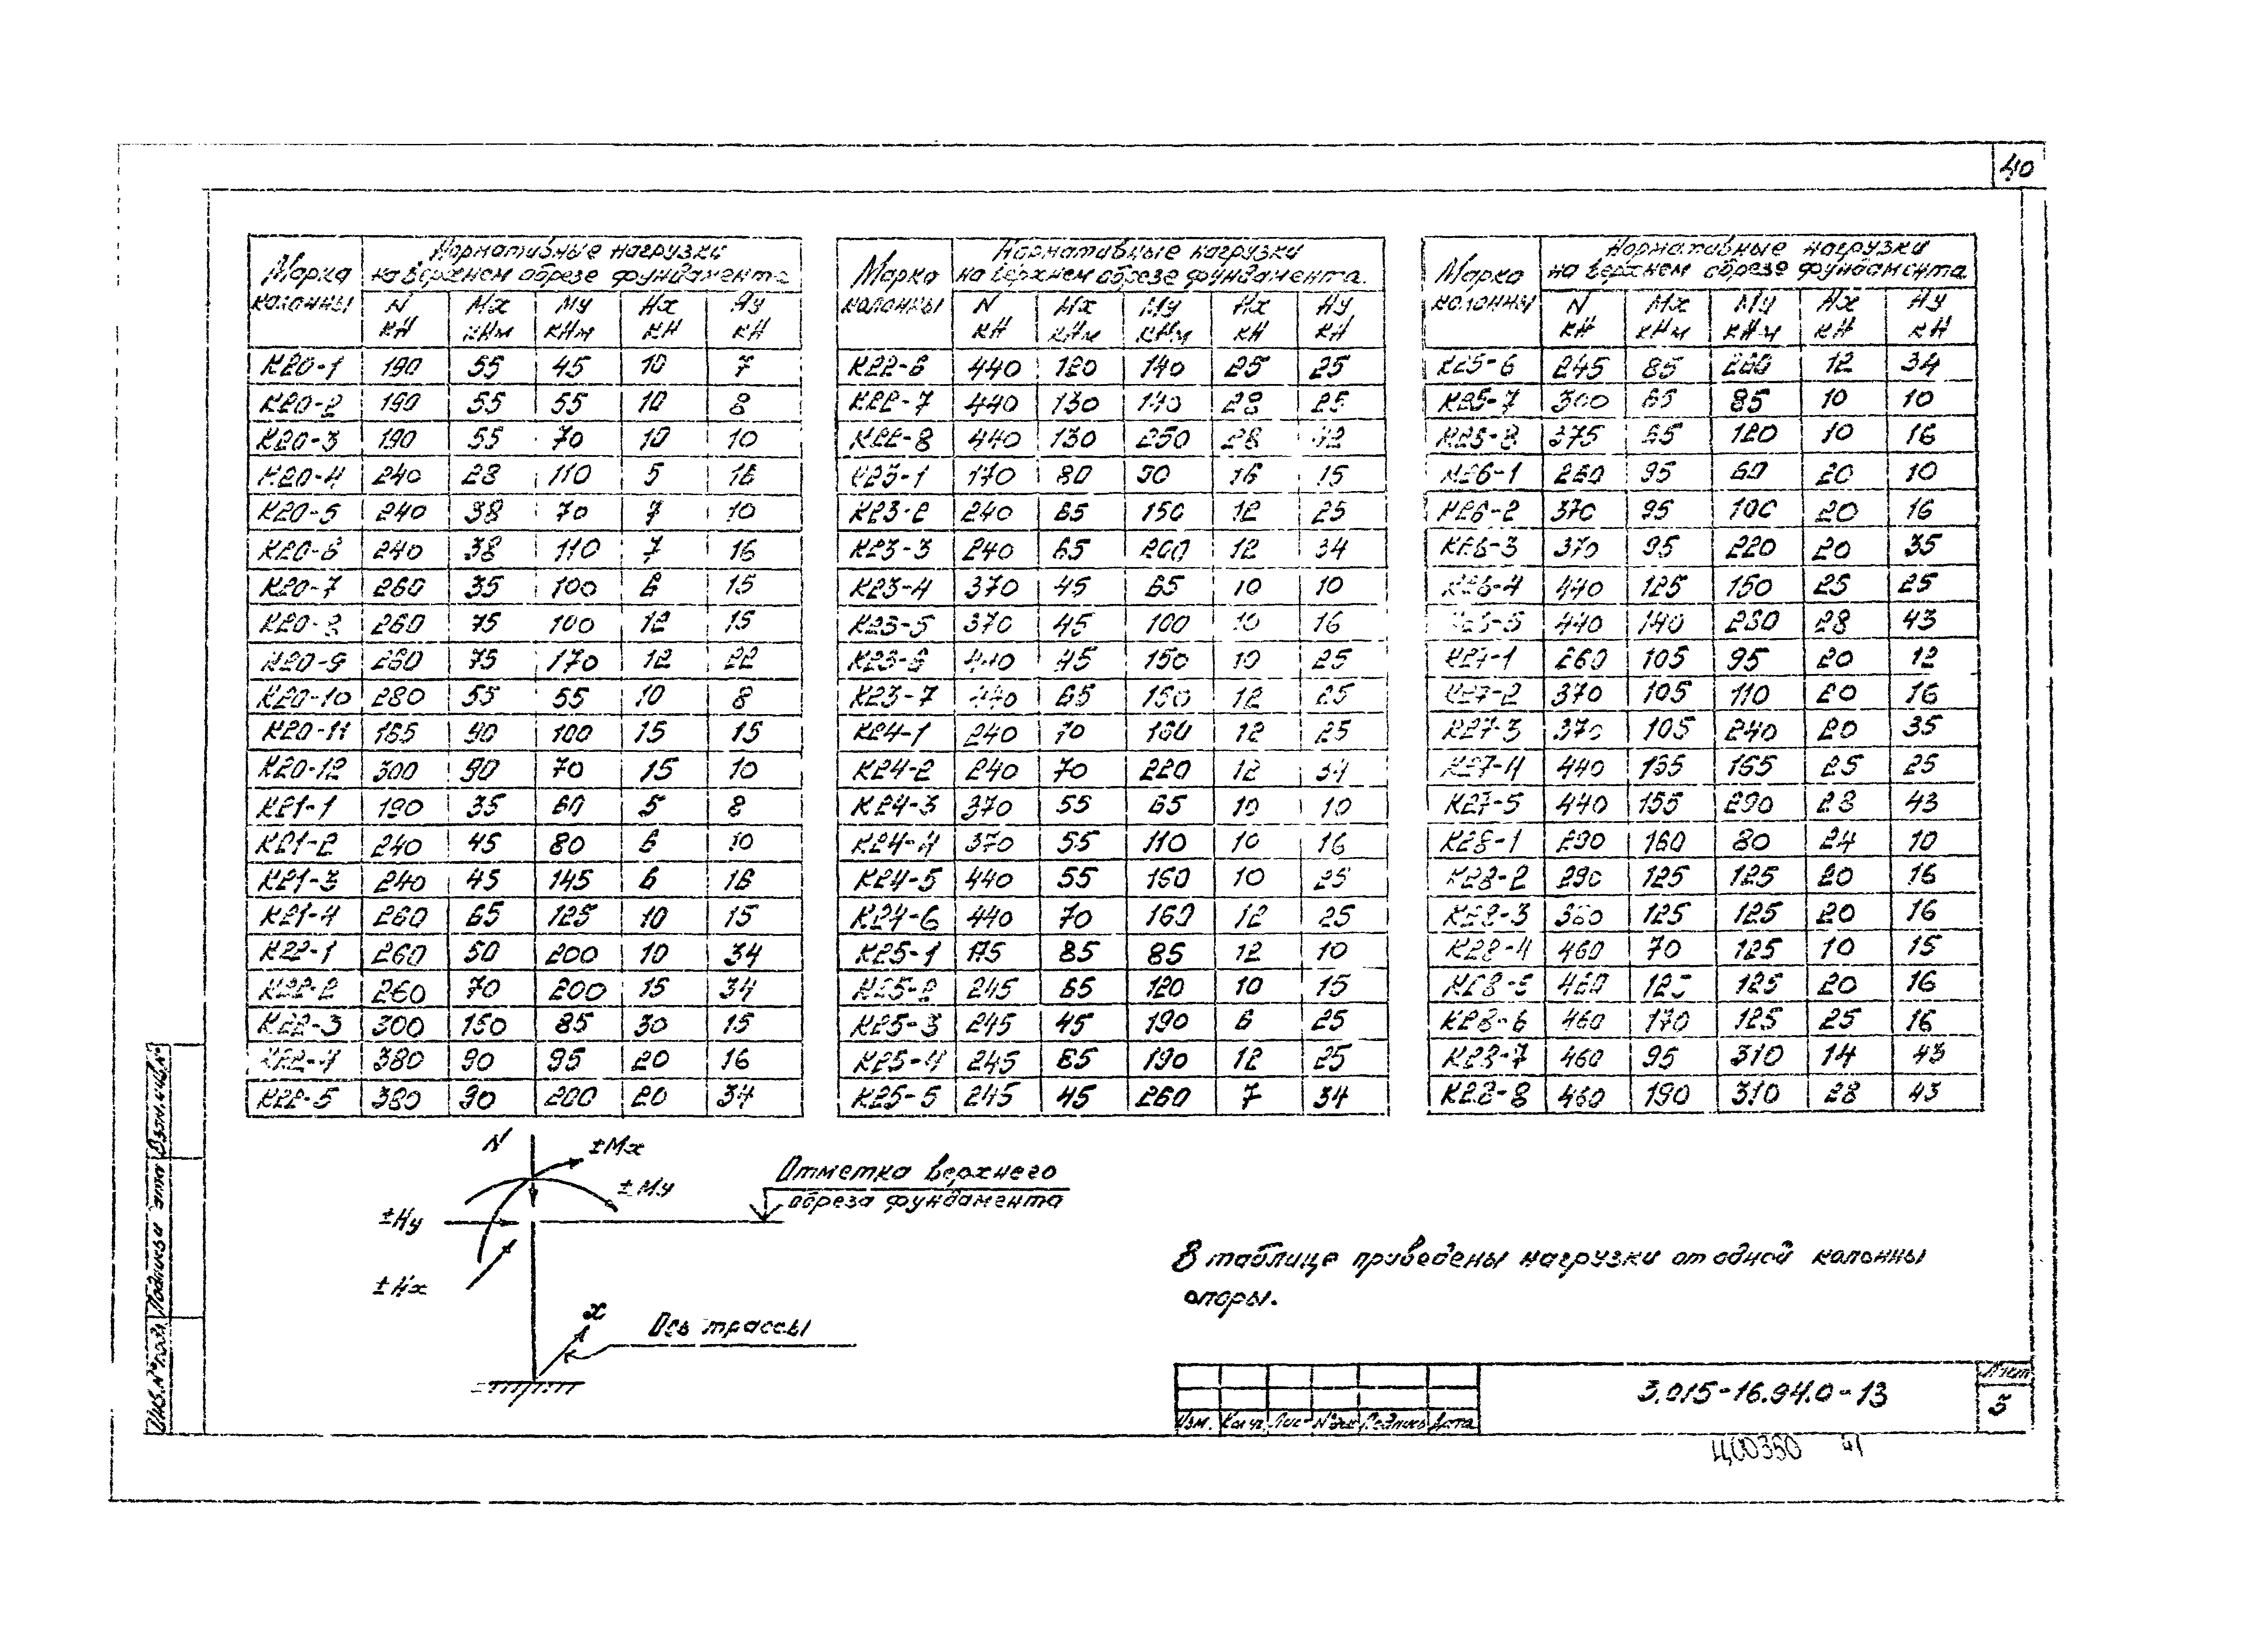 40
Марка колонны | Нормативные нагрузки на верхнем обрезе фундамента
N кН | Mx кНм | My кНм | Hx кН | Hy кН
К20-1 190 55 45 10 7
К20-2 190 55 55 10 8
К20-3 190 55 70 10 10
К20-4 240 28 110 5 16
К20-5 240 38 70 7 10
К20-6 240 38 110 7 16
К20-7 260 35 100 6 15
К20-8 260 75 100 12 15
К20-9 260 75 170 12 22
К20-10 280 55 55 10 8
К20-11 165 90 100 15 15
К20-12 300 90 70 15 10
К21-1 190 35 60 5 8
К21-2 240 45 80 6 10
К21-3 240 45 145 6 16
К21-4 260 65 125 10 15
К22-1 260 50 200 10 34
К22-2 260 70 200 15 34
К22-3 300 150 85 30 15
К22-4 380 90 95 20 16
К22-5 380 90 200 20 34
Марка колонны | Нормативные нагрузки на верхнем обрезе фундамента.
N кН | Mx кНм | My кНм | Hx кН | Hy кН
К22-6 440 120 140 25 25
К22-7 440 130 140 28 25
К22-8 440 130 250 28 42
К23-1 170 80 90 16 15
К23-2 240 65 150 12 25
К23-3 240 65 200 12 34
К23-4 370 45 65 10 10
К23-5 370 45 100 10 16
К23-6 440 45 150 10 25
К23-7 440 65 150 12 25
К24-1 240 70 160 12 25
К24-2 240 70 220 12 34
К24-3 370 55 65 10 10
К24-4 370 55 110 10 16
К24-5 440 55 160 10 25
К24-6 440 70 160 12 25
К25-1 175 85 85 12 10
К25-2 245 65 120 10 15
К25-3 245 45 190 6 25
К25-4 245 65 190 12 25
К25-5 245 45 260 7 34
Марка колонны | Нормативные нагрузки на верхнем обрезе фундамента
N кН | Mx кНм | My кНм | Hx кН | Hy кН
К25-6 245 85 260 12 34
К25-7 300 65 85 10 10
К25-8 375 65 120 10 16
К26-1 260 95 60 20 10
К26-2 370 95 100 20 16
К26-3 370 95 220 20 35
К26-4 440 125 150 25 25
К26-5 440 140 260 28 43
К27-1 260 105 95 20 12
К27-2 370 105 110 20 16
К27-3 370 105 240 20 35
К27-4 440 135 165 25 25
К27-5 440 155 290 28 43
К28-1 290 160 80 24 10
К28-2 290 125 125 20 16
К28-3 380 125 125 20 16
К28-4 460 70 125 10 15
К28-5 460 125 125 20 16
К28-6 460 170 125 25 16
К28-7 460 95 310 14 43
К28-8 460 190 310 28 43
N
±Mx
±My
±Hy
±Hx
Отметка верхнего
обреза фундамента
x
Ось трассы
В таблице приведены нагрузки от одной колонны
опоры.
Изм. Кол.уч. Лист №док Подпись Дата
3.015-16.94.0-13
Лист
5
Ц00350 41
Инв.№ подл. Подпись и дата Взам.инв.№